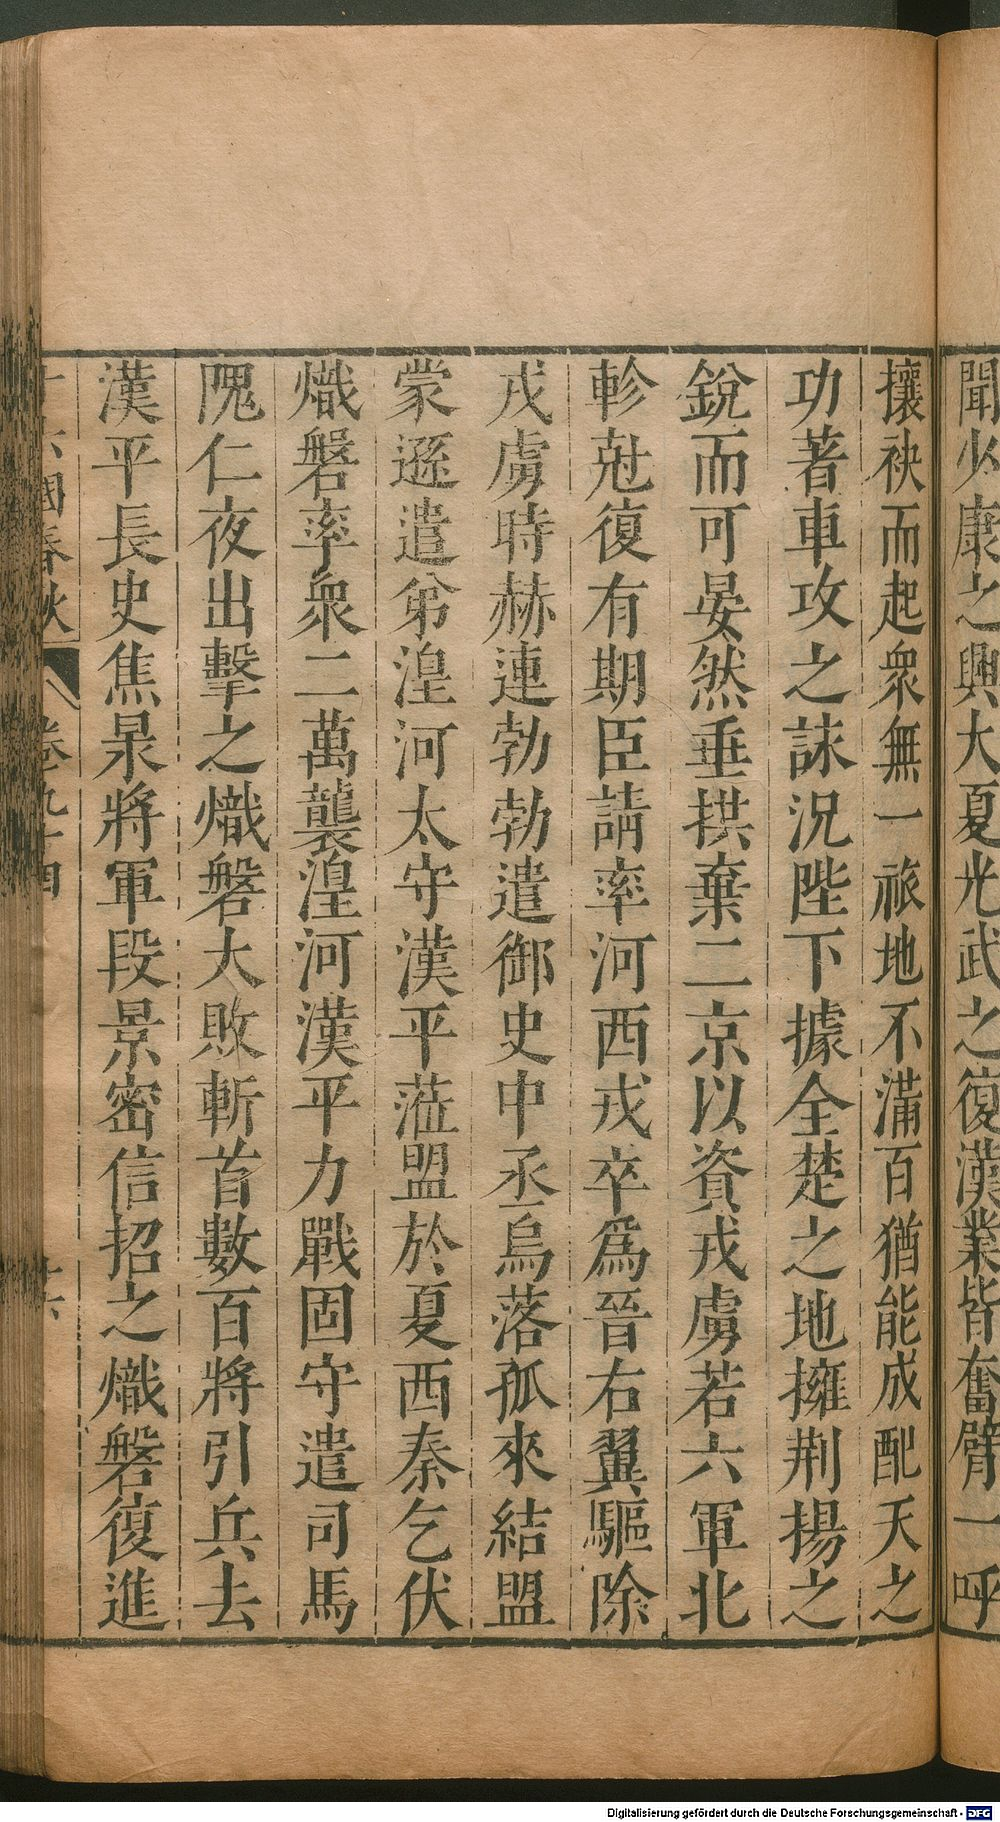 聞少康之興大夏光武之復漢業皆奮臂一呼
攘袂而起衆無一旅地不滿百猶能成配天之
功著車攻之詠況陛下據全楚之地擁荆揚之
銳而可晏然垂拱棄二京以資戎虜若六軍北
軫尅復有期臣請率河西戎卒爲晉右翼驅除
戎虜時赫連勃勃遣御史中丞烏落孤來結盟
蒙遜遣弟湟河太守漢平蒞盟於夏西秦乞伏
熾磐率衆二萬襲湟河漢平力戰固守遣司馬
隗仁夜出擊之熾磐大敗斬首數百將引兵去
漢平長史焦昶將軍段景密信招之熾磐復進
十六國春秋 卷九十四 十六
Digitalisierung gefördert durch die Deutsche Forschungsgemeinschaft - DFG